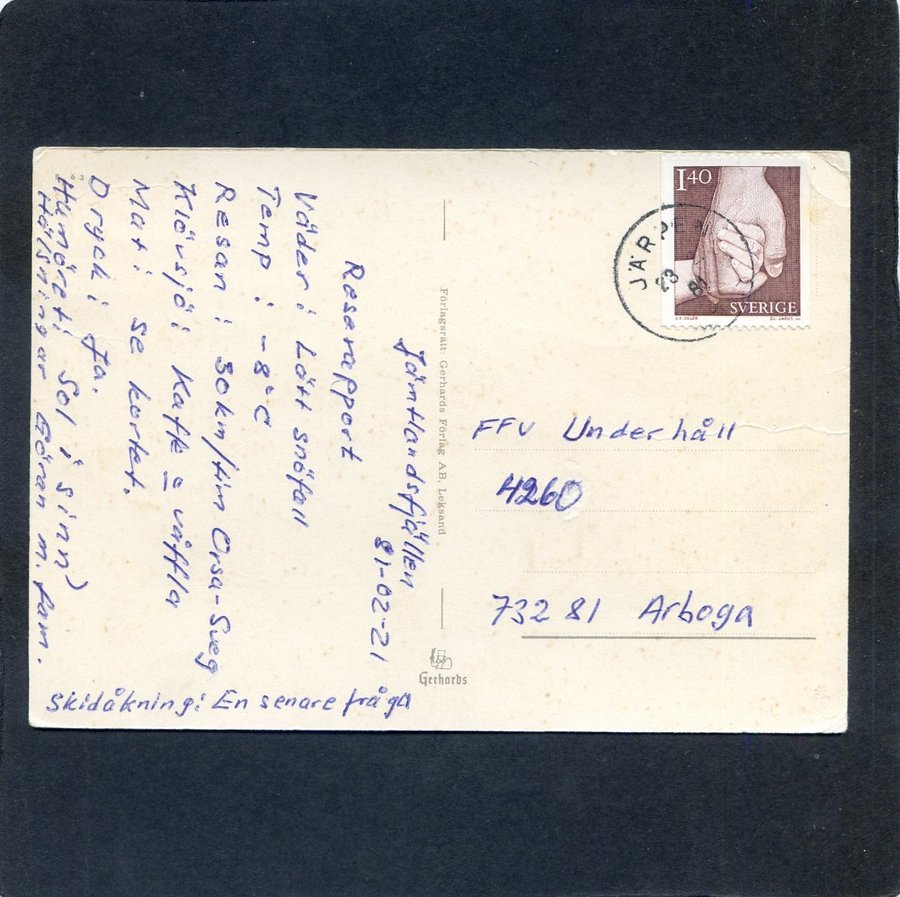 Jämtlandsfjällen
81-02-21
Reserapport
Väder: Lätt snöfall
Temp: -8°C
Resan: 30km/tim Orsa-Sveg
Klövsjö: Kaffe o våffla
Mat: se kortet.
Dryck: Ja.
Humöret: Sol i sinn)
Hälsningar Göran m. fam.
Skidåkning: En senare fråga
Förlagsrätt: Gerhards Förlag AB, Leksand
Gerhards
1 40
SVERIGE
JÄRPEN
23
81
FFV Underhåll
4260
732 81 Arboga